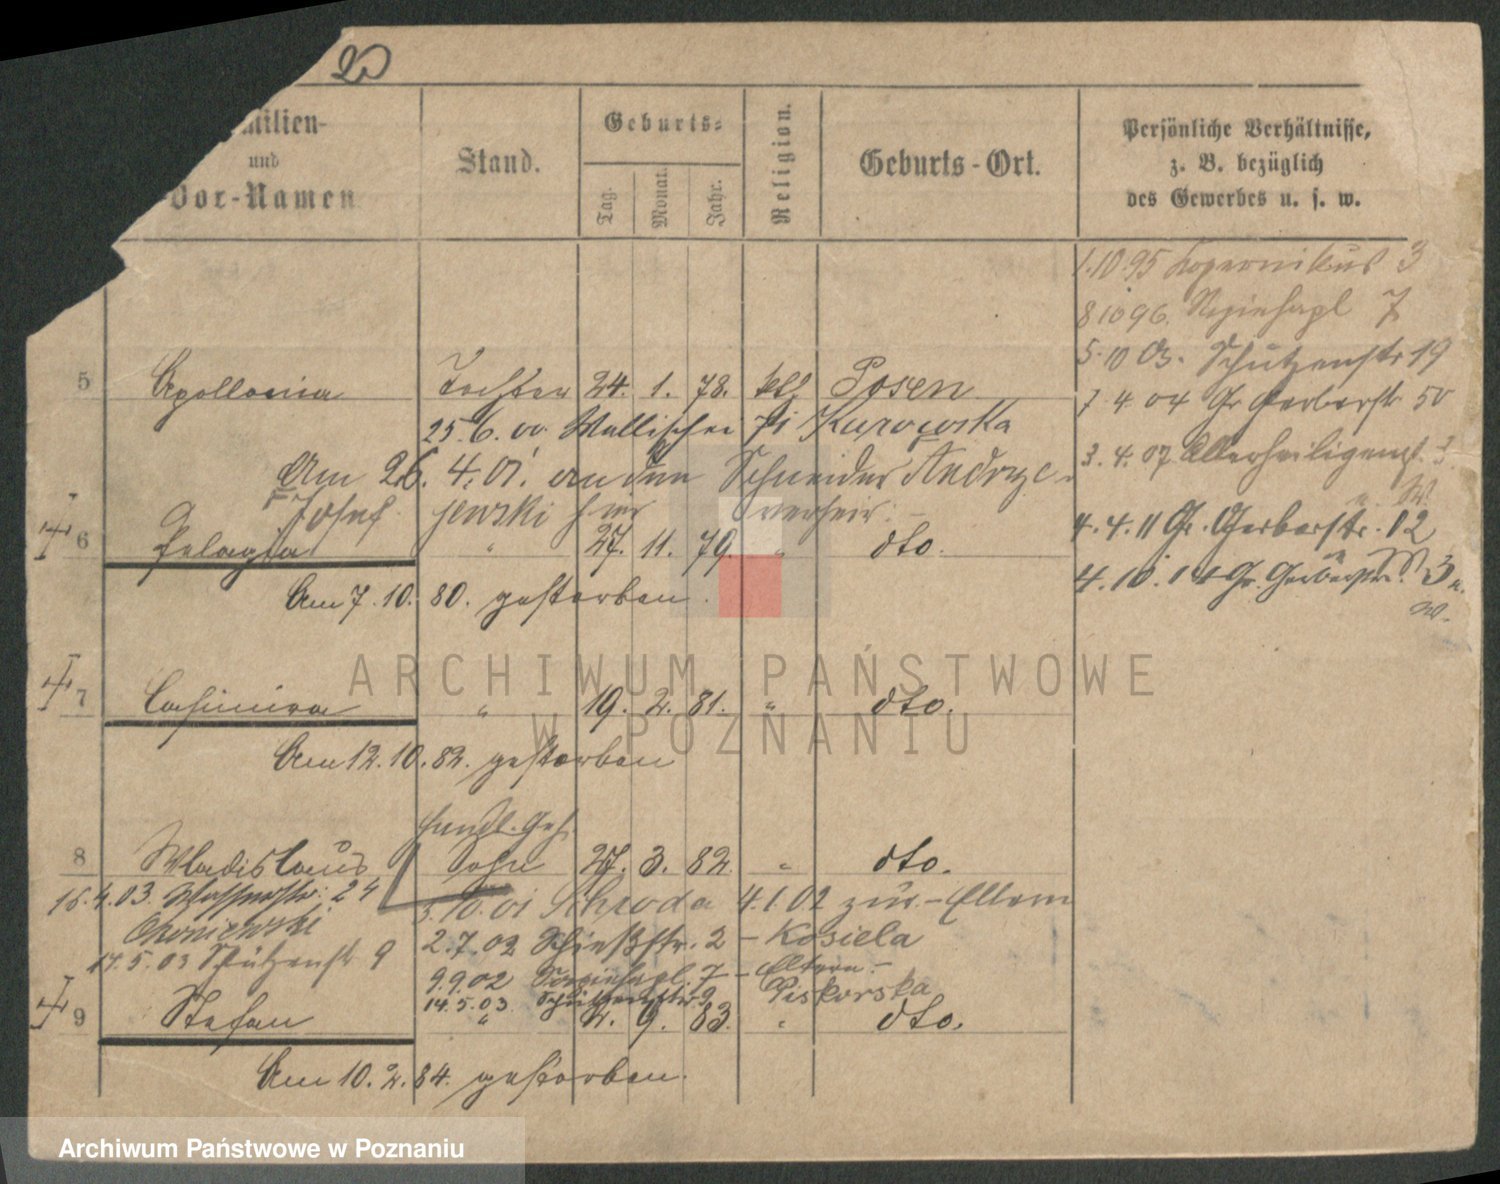 20
milien-
und
Vor-Namen
Stand.
Geburts-
Tag.
Monat.
Jahr.
Religion.
Geburts-Ort.
Persönliche Verhältnisse,
z. B. bezüglich
des Gewerbes u. s. w.
1.10.95 Kopernikus 3
8 10 96. 7
5.10 03. Schützenstr 19
7 4 04 Gr Gerberstr 50
3. 4. 07 Allerheiligenst. 3.
4. 4. 11 Gr. Gerberstr. 12
4. 10. 14 Gr. Gerberstr. 3
5 Apollonia Tochter 24. 1. 78. kth Posen
25. 6. 00. Wallischei 71 Kurowska
Am 26. 4. 01. an den Schneider Andrze-
Josef jewski hier verheir.
6 Pelagia " 27. 11. 79. " dto.
Am 7. 10. 80. gestorben.
7 Casimira " 19. 2. 81. " dto.
Am 12. 10. 82. gestorben
Handl. Geh.
8 Wladislaus Sohn 27. 3. 82. " dto.
16. 4. 03. 24
5. 10. 01 Schroda 4. 1. 02 zur. - Eltern
2. 7. 02 Schießstr. 2 - Kosiela
14. 5. 03 Schützenstr 9
9. 9. 02 7 - Eltern -
14. 5. 03 Schützenstr 9 Piskorska
9 Stefan " 2. 9. 83. " dto.
Am 10. 2. 84. gestorben.
ARCHIWUM PAŃSTWOWE
W POZNANIU
Archiwum Państwowe w Poznaniu